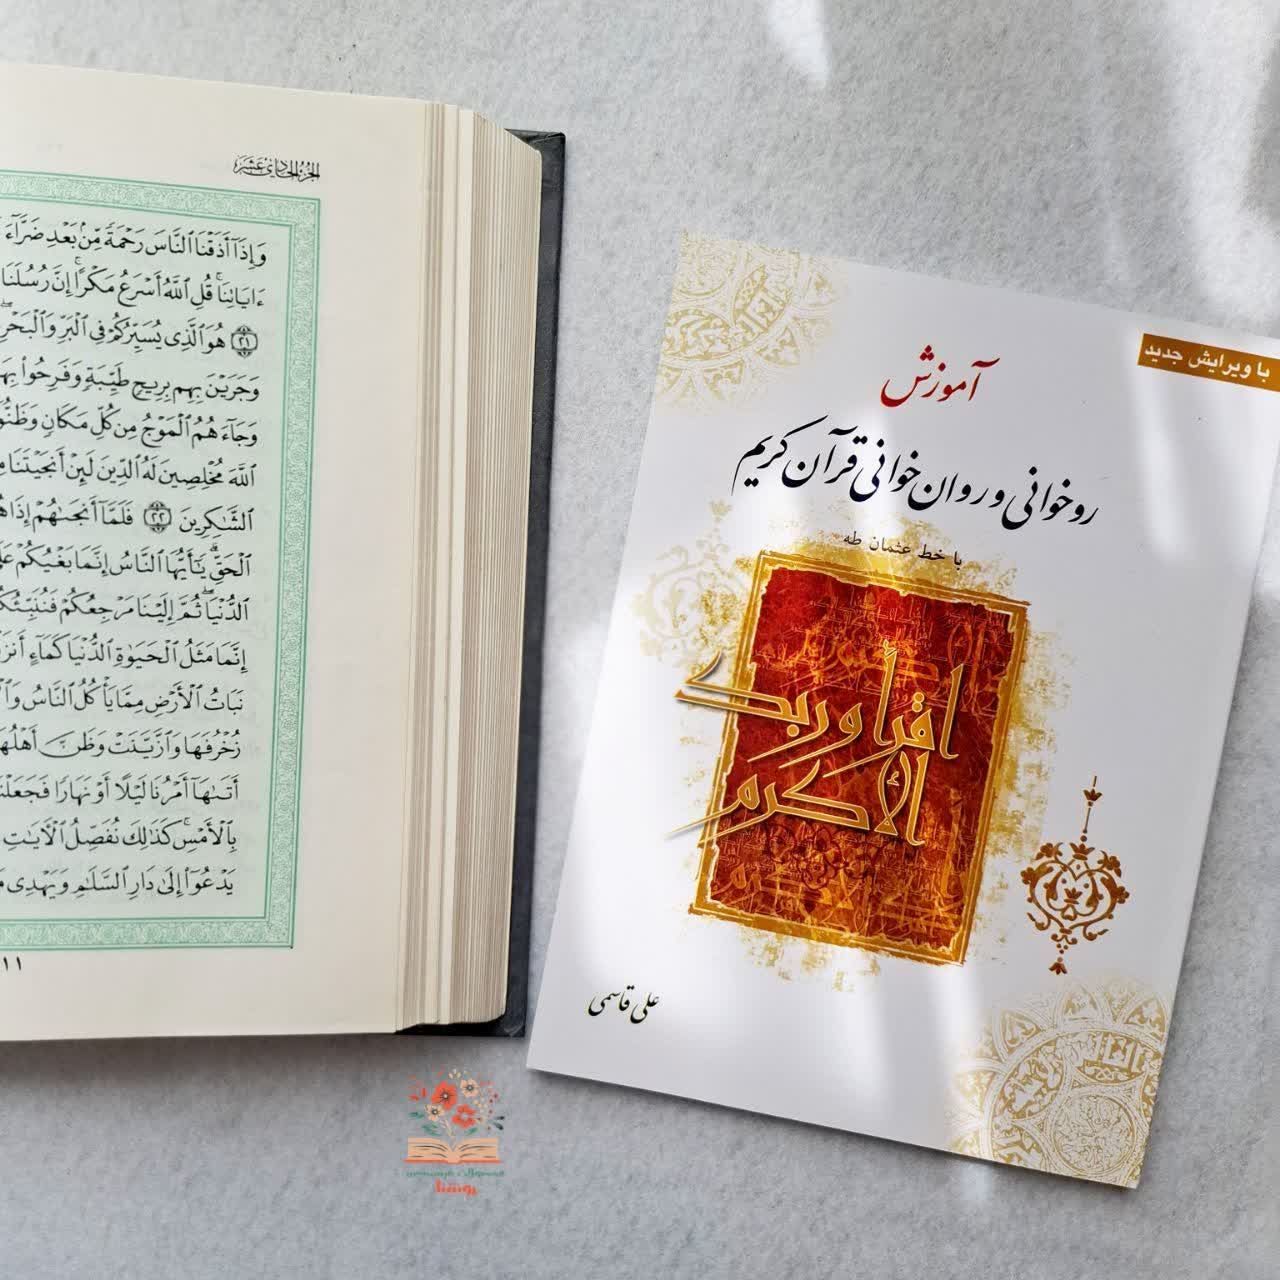 الجزء الحادي عشر
وَإِذَآ أَذَقْنَا ٱلنَّاسَ رَحْمَةً مِّنۢ بَعْدِ ضَرَّآءَ
ءَايَاتِنَاۚ قُلِ ٱللَّهُ أَسْرَعُ مَكْرًاۚ إِنَّ رُسُلَنَا
﴿٢١﴾ هُوَ ٱلَّذِى يُسَيِّرُكُمْ فِى ٱلْبَرِّ وَٱلْبَحْرِۖ
وَجَرَيْنَ بِهِم بِرِيحٍ طَيِّبَةٍ وَفَرِحُوا۟
وَجَآءَهُمُ ٱلْمَوْجُ مِن كُلِّ مَكَانٍ وَظَنُّوٓا۟
ٱللَّهَ مُخْلِصِينَ لَهُ ٱلدِّينَ لَئِنْ أَنجَيْتَنَا
ٱلشَّٰكِرِينَ ﴿٢٢﴾ فَلَمَّآ أَنجَىٰهُمْ إِذَا
ٱلْحَقِّۗ يَٰٓأَيُّهَا ٱلنَّاسُ إِنَّمَا بَغْيُكُمْ
ٱلدُّنْيَاۖ ثُمَّ إِلَيْنَا مَرْجِعُكُمْ
إِنَّمَا مَثَلُ ٱلْحَيَوٰةِ ٱلدُّنْيَا كَمَآءٍ
نَبَاتُ ٱلْأَرْضِ مِمَّا يَأْكُلُ ٱلنَّاسُ
زُخْرُفَهَا وَٱزَّيَّنَتْ وَظَنَّ أَهْلُهَآ
أَتَىٰهَآ أَمْرُنَا لَيْلًا أَوْ نَهَارًا
بِٱلْأَمْسِۚ كَذَٰلِكَ نُفَصِّلُ ٱلْءَايَٰتِ
يَدْعُوٓا۟ إِلَىٰ دَارِ ٱلسَّلَٰمِ وَيَهْدِى
١١
با ویرایش جدید
آموزش
روخوانی و روان‌خوانی قرآن کریم
با خط عثمان طه
اقرأ و ربك
الأكرم
علی قاسمی
روشنا